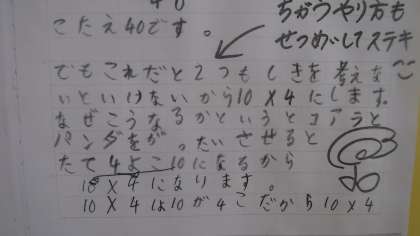 40
ちがうやり方も
せつめいしてステキ
こたえ40です。
でもこれだと2つもしきを考えな
いといけないから10×4にします。
なぜこうなるかというとコアラと
パンダをが。たいさせると
たて4よこ10になるから
10×4になります。
10×4は10が4こだから10×4